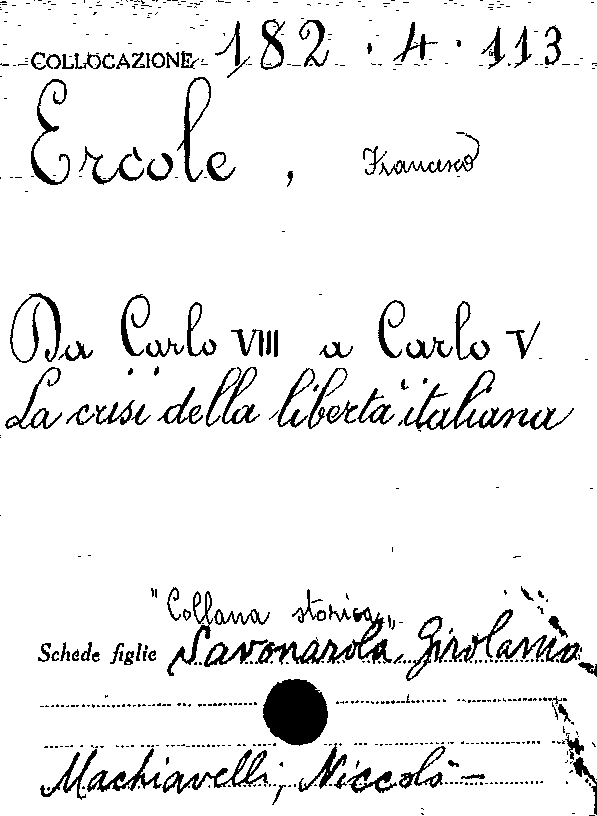 COLLOCAZIONE 182.4.113
Ercole, Francesco
Da Carlo VIII a Carlo V
La crisi della libertà italiana
"Collana storica"
Schede figlie Savonarola, Girolamo
Machiavelli, Niccolò -